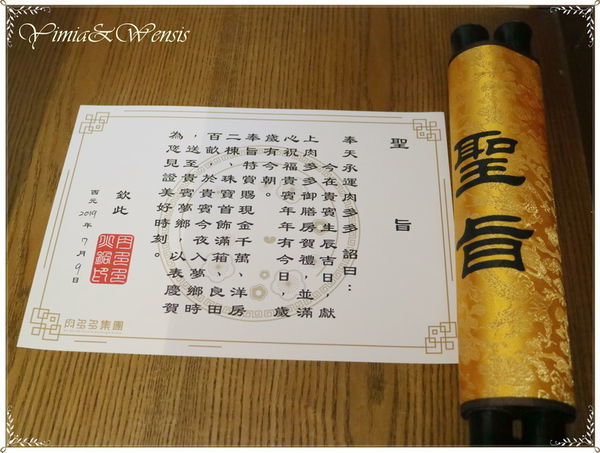 Yimia&Wensis
聖旨
奉天承運肉多多 詔曰：
今在貴賓生辰吉日，獻
上肉多多御膳房賀禮，並滿
心祝福貴賓年年有今日，歲
歲有今朝。
奉旨特賞賜現金千萬、洋房
二棟、珠寶首飾滿箱、良田
百畝，於貴賓今夜入夢鄉時
，送至貴賓夢鄉，以表慶賀
為您見證美好時刻。
欽此
西元2019年7月9日
肉多多
火鍋印
肉多多集團
聖旨